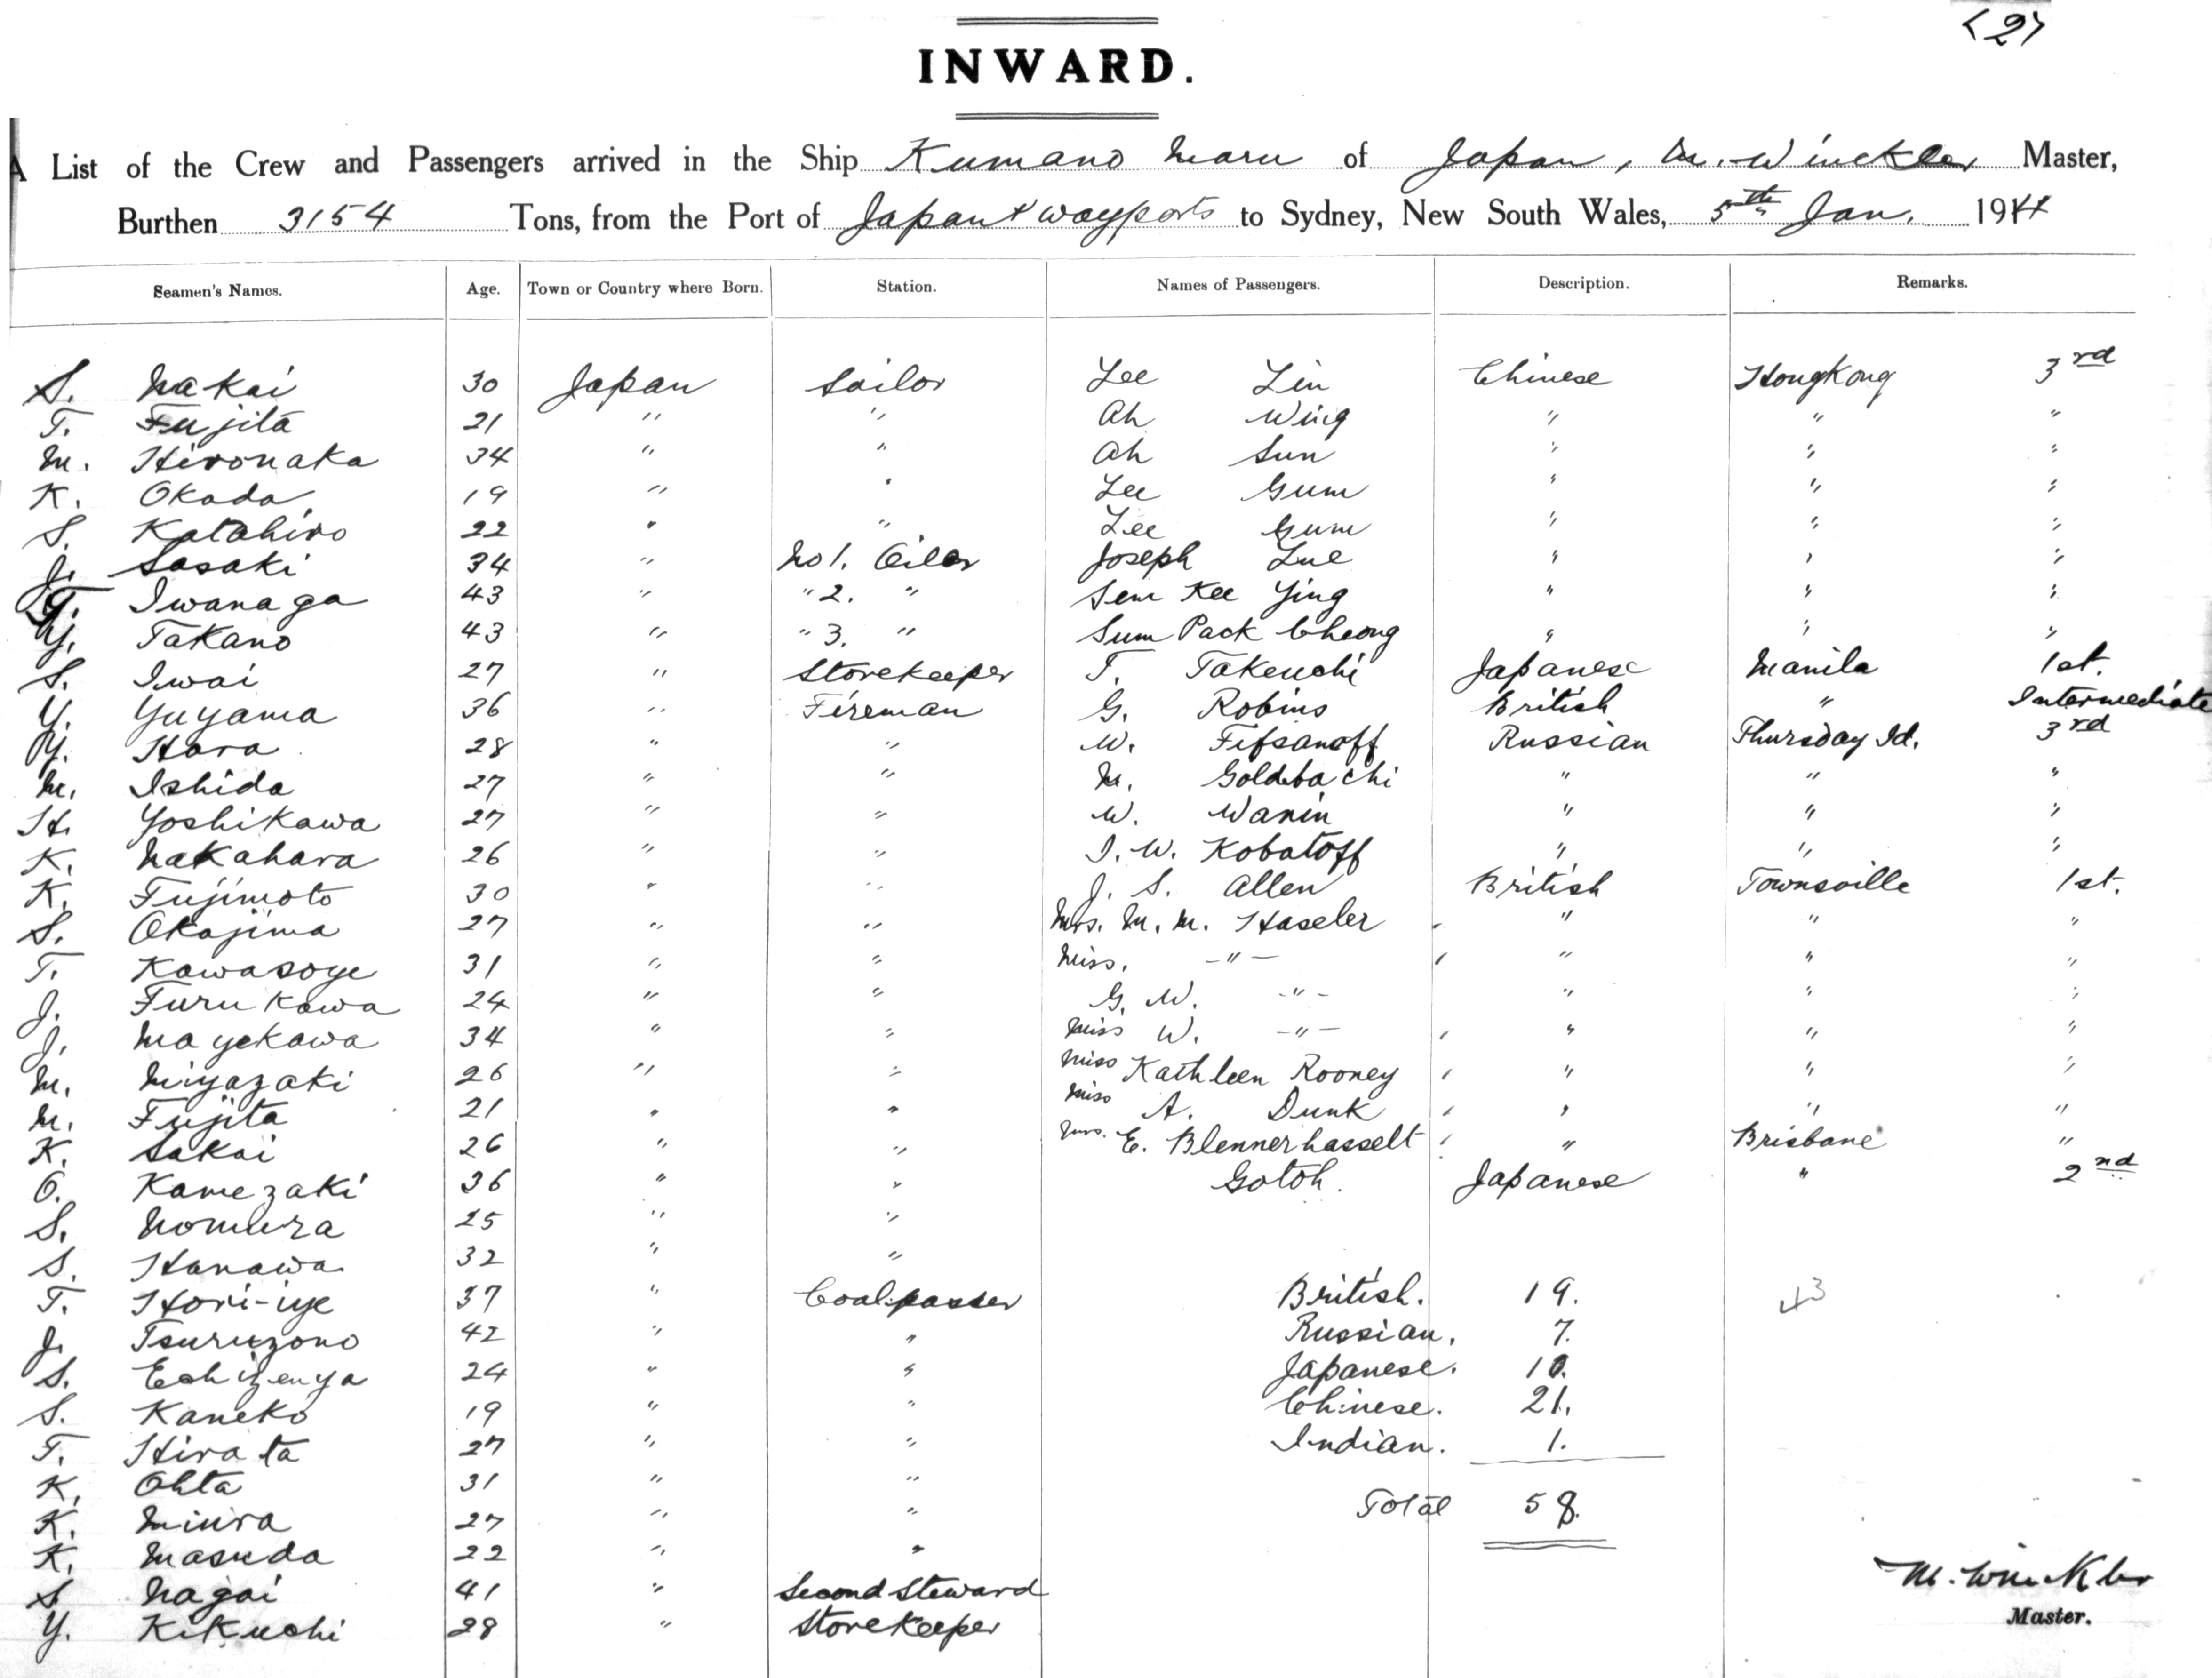 <2>
INWARD.
A List of the Crew and Passengers arrived in the Ship Kumano Maru of Japan, M. Winckler Master,
Burthen 3154 Tons, from the Port of Japan & wayports to Sydney, New South Wales, 5th Jan. 1911
Seamen's Names. Age. Town or Country where Born. Station. Names of Passengers. Description. Remarks.
S. Nakai 30 Japan Sailor Lee Lin Chinese Hongkong 3rd
T. Fujita 21 " " Ah Wing " " "
M. Hironaka 34 " " Ah Sun " " "
K. Okada 19 " " Lee Gum " " "
S. Katahiro 22 " " Lee Gum " " "
J. Sasaki 34 " No 1. Oiler Joseph Lue " " "
T. Iwanaga 43 " " 2. " Sem Kee Ying " " "
Y. Takano 43 " " 3. " Sum Pack Cheong " " "
S. Iwai 27 " Storekeeper T. Takeuchi Japanese Manila 1st.
Y. Yuyama 36 " Fireman G. Robins British " Intermediate
Y. Hara 28 " " W. Fifsanoff Russian Thursday Id. 3rd
M. Ishida 27 " " M. Goldobachi " " "
H. Yoshikawa 27 " " W. Wanin " " "
K. Nakahara 26 " " I. W. Kobatoff " " "
K. Fujimoto 30 " " J. S. Allen British Townsville 1st.
S. Okajima 27 " " Mrs. M. M. Haseler " " "
T. Kawasoye 31 " " Miss. -"- " " "
J. Furukawa 24 " " G. W. -"- " " "
J. Mayekawa 34 " " Miss W. -"- " " "
M. Miyazaki 26 " " Miss Kathleen Rooney " " "
M. Fujita 21 " " Miss A. Dunk " " "
K. Sakai 26 " " Mrs. E. Blennerhasselt " Brisbane "
O. Kamezaki 36 " " Gotoh. Japanese " 2nd
S. Nomura 25 " "
S. Hanawa 32 " "
T. Hori-iye 37 " Coalpasser British. 19. 43
J. Tsuruzono 42 " " Russian. 7.
S. Echizenya 24 " " Japanese. 10.
S. Kaneko 19 " " Chinese. 21.
T. Hirata 27 " " Indian. 1.
K. Ohta 31 " "
K. Miura 27 " " Total 58.
K. Masuda 22 " "
S Nagai 41 " Second Steward M. Winckler
Y. Kikuchi 28 " Storekeeper Master.